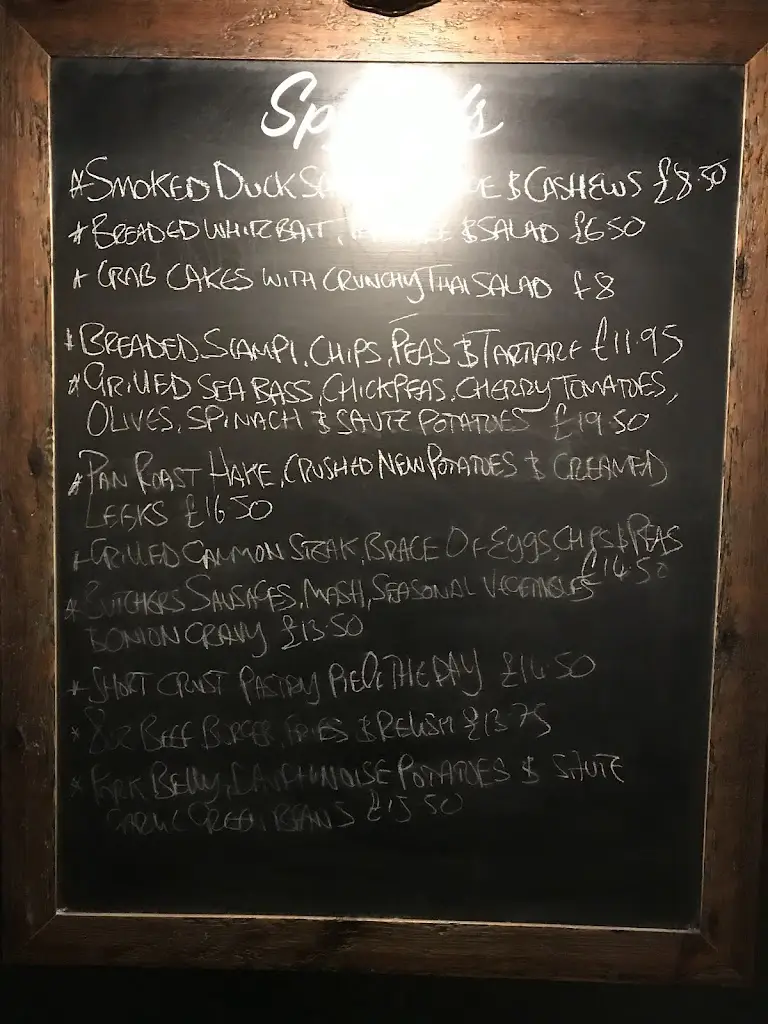 Specials
*SMOKED DUCK & CASHEWS £8.50
*BREADED WHITEBAIT, & SALAD £6.50
* CRAB CAKES WITH CRUNCHY THAI SALAD £8
*BREADED SCAMPI, CHIPS, PEAS & TARTARE £11.95
*GRILLED SEA BASS, CHICKPEAS, CHERRY TOMATOES,
OLIVES, SPINACH & SAUTE POTATOES £19.50
*PAN ROAST HAKE, CRUSHED NEW POTATOES & CREAMED
LEEKS £16.50
*GRILLED GAMMON STEAK, BRACE OF EGGS, CHIPS & PEAS
£14.50
*BUTCHERS SAUSAGES, MASH, SEASONAL VEGETABLES
& ONION GRAVY £13.50
*SHORT CRUST PASTRY PIE OF THE DAY £14.50
* 8oz BEEF BURGER, FRIES & RELISH £13.75
* PORK BELLY, DAUPHINOISE POTATOES & SAUTE
GARLIC GREEN BEANS £15.50